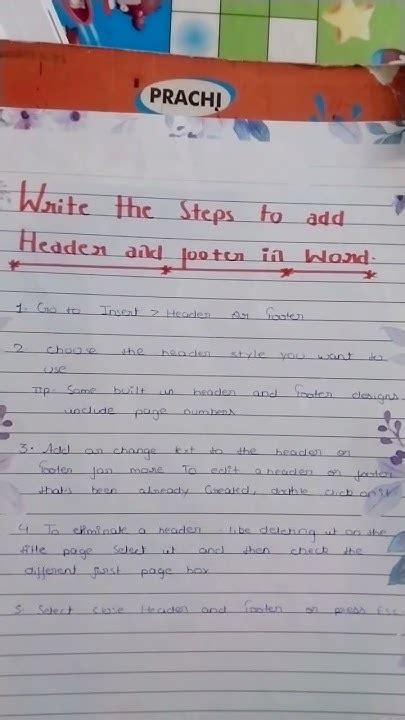 PRACHI
Write the Steps to add
Header and footer in Word.
1. Go to Insert > Header or footer
2 choose the header style you want to
use
Tip: Some built in header and footer designs
include page numbers
3. Add or change text to the header or
footer for more To edit a header or footer
that's been already Created, double click on it
4 To eliminate a header like deleting it on the
title page select it and then check the
different first page box
5. Select close Header and footer or press Esc